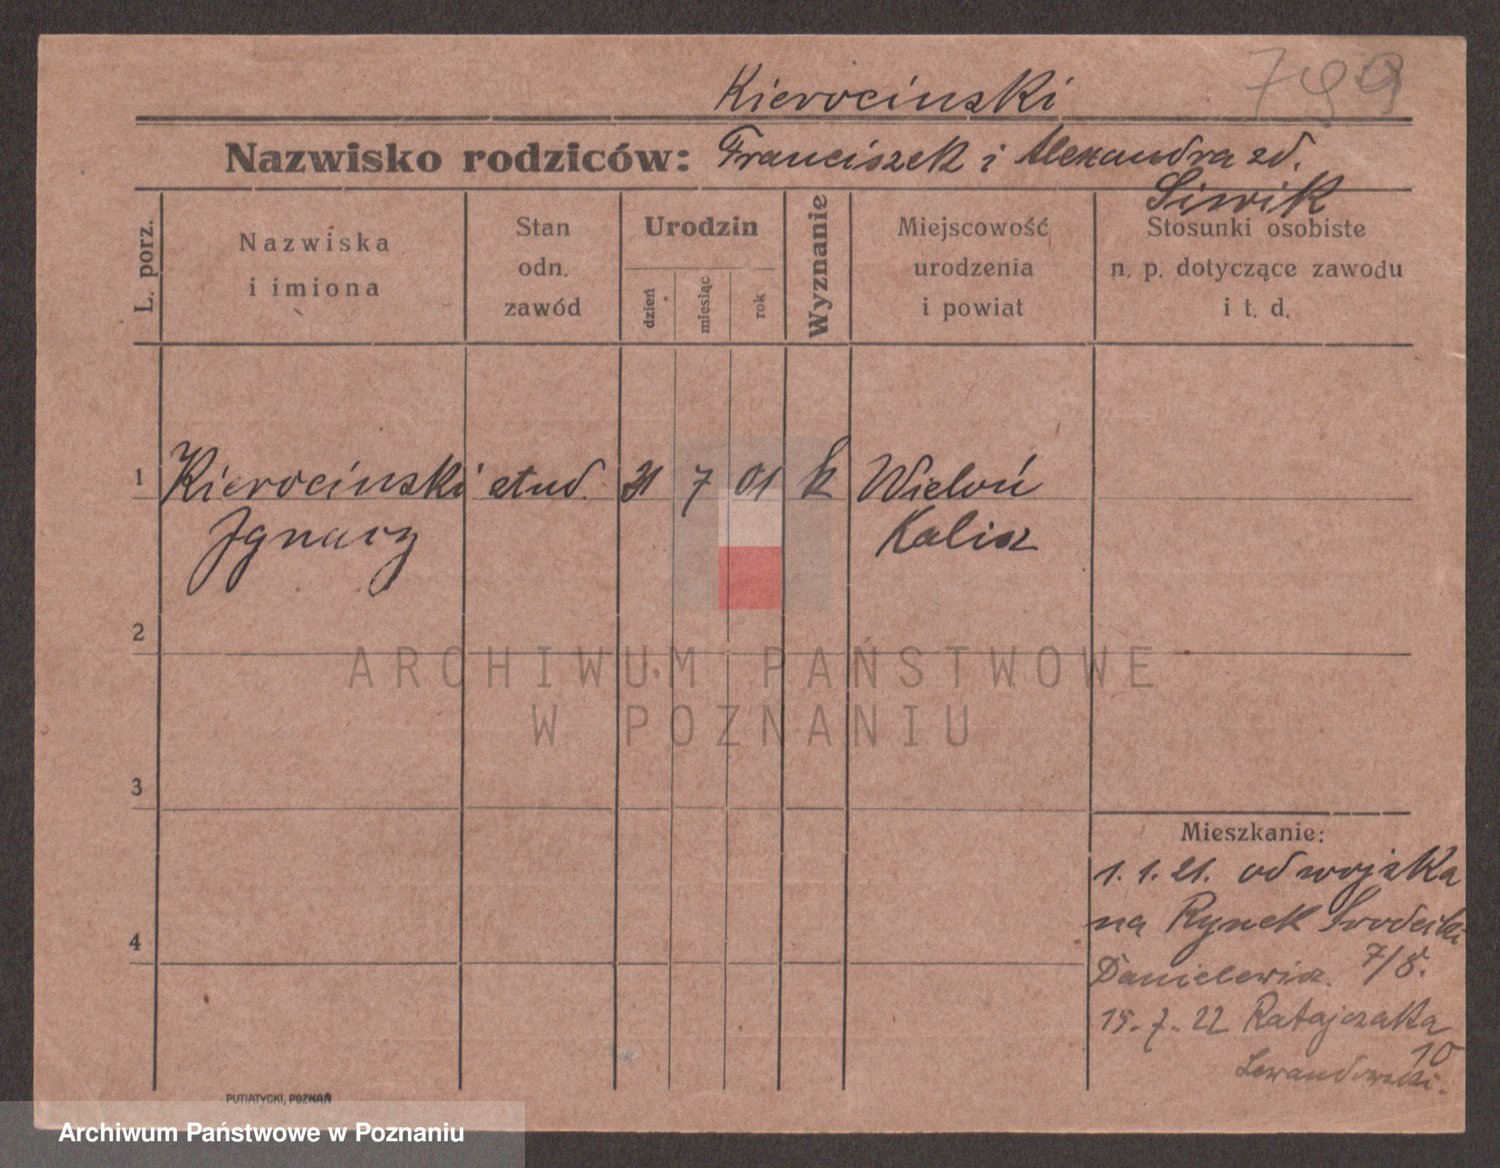 799
Kierocinski
Nazwisko rodziców: Franciszek i Alexandra zd.
Siwik
L. porz.
Nazwiska
i imiona
Stan
odn.
zawód
Urodzin
dzień
miesiąc
rok
Wyznanie
Miejscowość
urodzenia
i powiat
Stosunki osobiste
n. p. dotyczące zawodu
i t. d.
1 Kierocinski stud. 31 7 01 k Wieluń
Ignacy Kalisz
2
ARCHIWUM PAŃSTWOWE
W POZNANIU
3
Mieszkanie:
1.1.21. od wojska
na Rynek Srodecki
Danielewicz. 7/8.
4
15-7-22 Ratajczaka
10
Lewandowski.
PUTIATYCKI, POZNAŃ
Archiwum Państwowe w Poznaniu